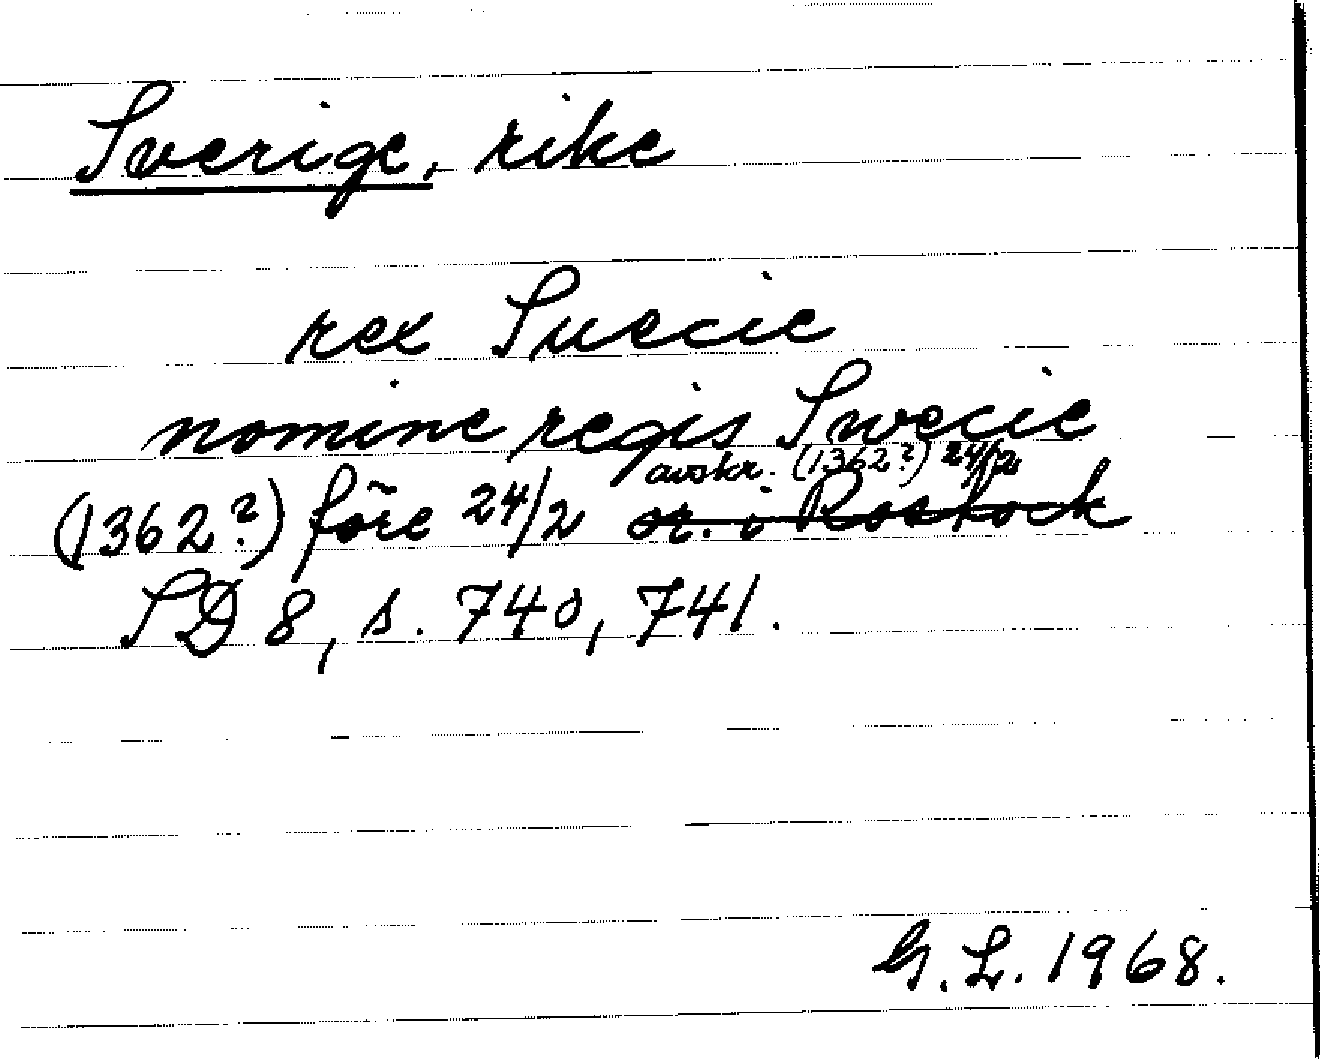 Sverige, rike
rex Suecie
nomine regis Swecie
avskr. (1362?) 24/2
(1362?) före 24/2 or. i Rostock
SD 8, s. 740, 741.
G. L. 1968.